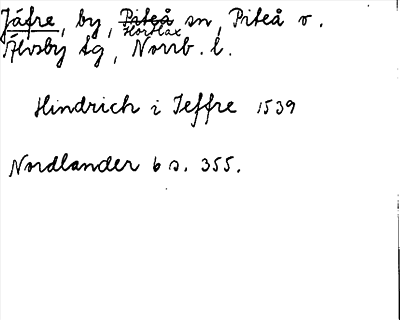 Jäfre, by, Piteå Hortlax sn, Piteå o.
Älvsby tg, Norrb. l.
Hindrich i Jeffre 1539
Nordlander 6 s. 355.